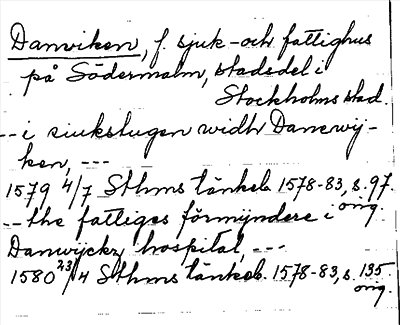 Danviken, f. sjuk- och fattighus
på Södermalm, stadsdel i
Stockholms stad.
-- i siukstugen widh Danewij-
ken, ---
1579 4/7 Sthms tänkeb. 1578-83, s. 97.
orig.
-- the fattiges förmyndere i
Danwijckz hospital, ---
1580 23/4 Sthms tänkeb. 1578-83, s. 135.
orig.